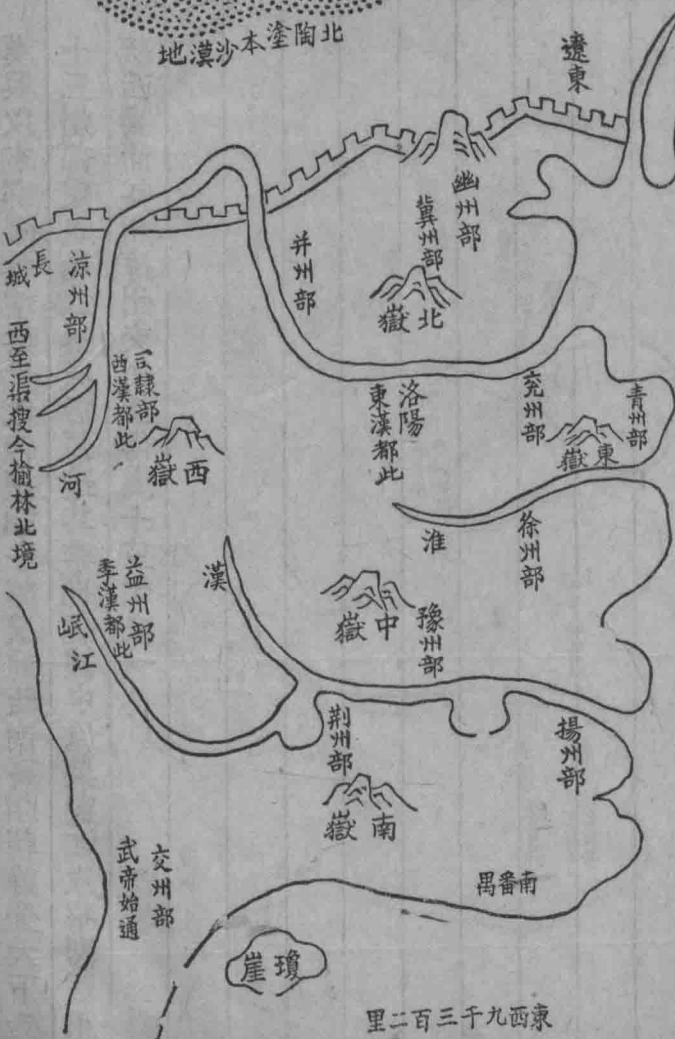 北陶塗本沙漠地
遼東
幽州部
冀州部
北嶽
并州部
長城
涼州部
西至渠搜今榆林北境
司隸部
西漢都此
西嶽
河
洛陽
東漢都此
兗州部
青州部
東嶽
徐州部
淮
中嶽
豫州部
漢
益州部
季漢都此
岷江
荆州部
南嶽
揚州部
南番禺
交州部
武帝始通
瓊崖
東西九千三百二里